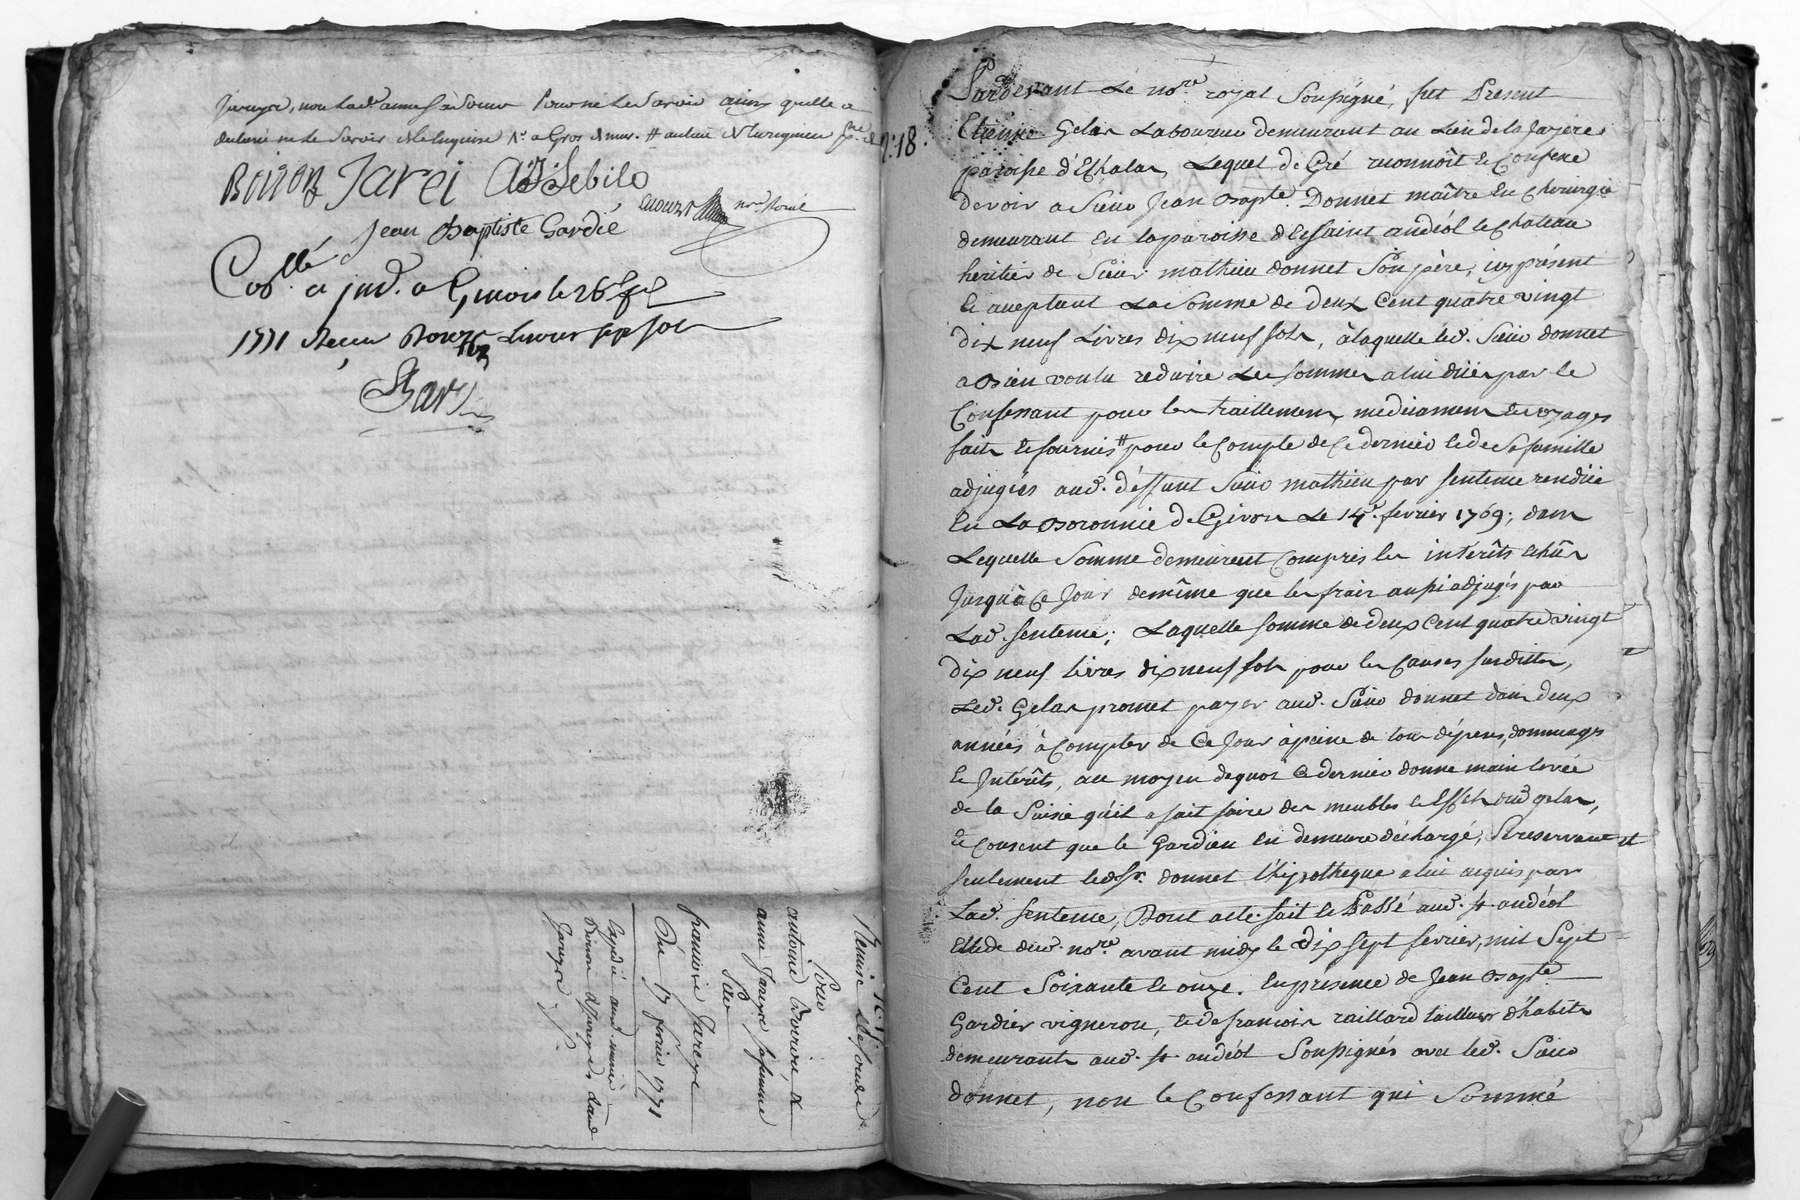 Jareyre, non lad. anne
pour ne le savoir ainsy quelle a
declaré ne le savoir
Boiron Jarei ADSebilo
Jean Baptiste Gardié
Coll.é à Givors le 26
1771 Reçu livres sols
N.18.
Pardevant Le no.re royal Soussigné, fut Présent
Etienne Gelas Laboureur demeurant au Lieu de la Jayère
paroisse d'Echalas, Lequel de Gré reconnoît et Confesse
devoir a Sieur Jean Bapte Donnet maître En Chirurgie
demeurant En la paroisse de Saint andéol le Chateau
heritier de Sieur mathieu donnet Son père, icy présent
et aceptant La Somme de deux Cent quatre vingt
dix neuf Livres dix neuf sols, à laquelle led. Sieur donnet
a Bien voulu reduire Les sommes a lui düés par le
Confessant pour les traittemens, medicamens et voyages
faits et fournis # pour le Compte de Ce dernier et de Sa famille
adjugées aud. déffunt Sieur mathieu par sentence rendüe
En La Baronnie de Givors Le 14e. fevrier 1769; dans
Lequelle Somme demeurent Compris les intérêts échûs
Jusqu'à Ce Jour de même que les frais aussi adjugés par
Lad. sentence; Laquelle somme de deux Cent quatre vingt
dix neuf livres dix neuf sols pour les Causes susdittes,
Led. Gelas promet payer aud. Sieur donnet dans deux
années à Compter de Ce Jour à peine de tous dépens, dommages
et Intérêts, au moyen de quoi Ce dernier donne main levée
de la Saisie qu'il a fait faire des meubles et Effets dud gelas,
et Consent que le Gardien En demeure déchargé, Se reservant #
seulement led. Sr. donnet l'hipotheque a lui acquis par
Lad. sentence, Dont acte. fait et Passé aud. St andéol
Etude dud. no.re avant midy le dix sept fevrier, mil Sept
Cent Soixante et onze. En présence de Jean Bapte
Gardier vigneron, et de francois raillard tailleur d'habits
demeurants aud. St andéol Soussignés avec led. Sieur
donnet, non le Confessant qui Sommé
Remise
Pour
antoine Boiron &
anne Jareyre sa femme
Par
francoise Jareyre
Du 17 fevrier 1771
Jareyre